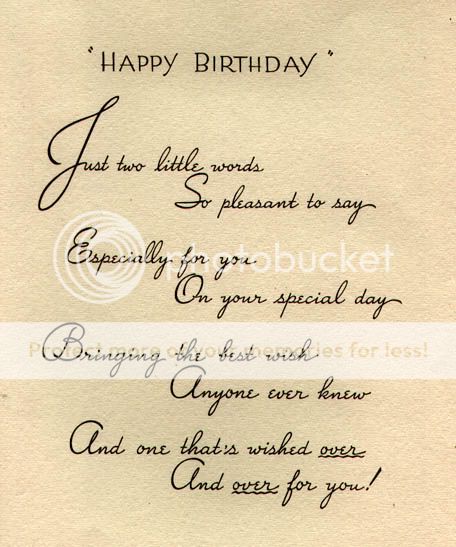 "HAPPY BIRTHDAY"
Just two little words
So pleasant to say
Especially for you
On your special day
Bringing the best wish
Anyone ever knew
And one that's wished over
And over for you!
photobucket
Protect more of your memories for less!